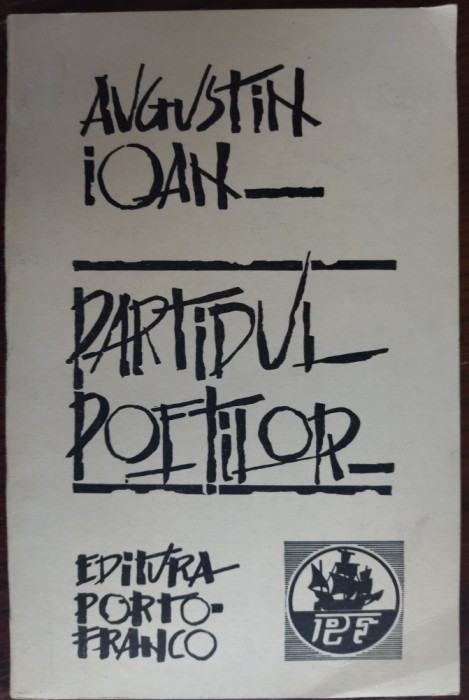 AUGUSTIN
iOAN
PARTiDUL
POEţiLOR
EDiTURA
PORTO-
FRANCO
PF